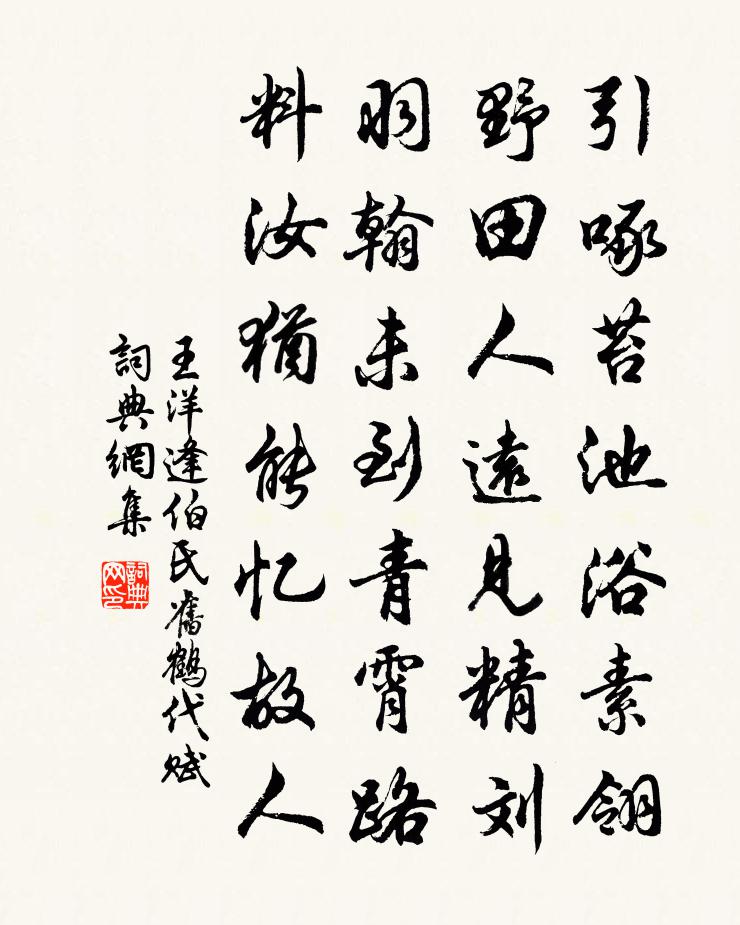 引啄苔池浴素翎
野田人遠見精刘
羽翰未到青霄路
料汝猶能忆故人
王洋逢伯氏舊鶴代赋
詞典網集
詞典网印